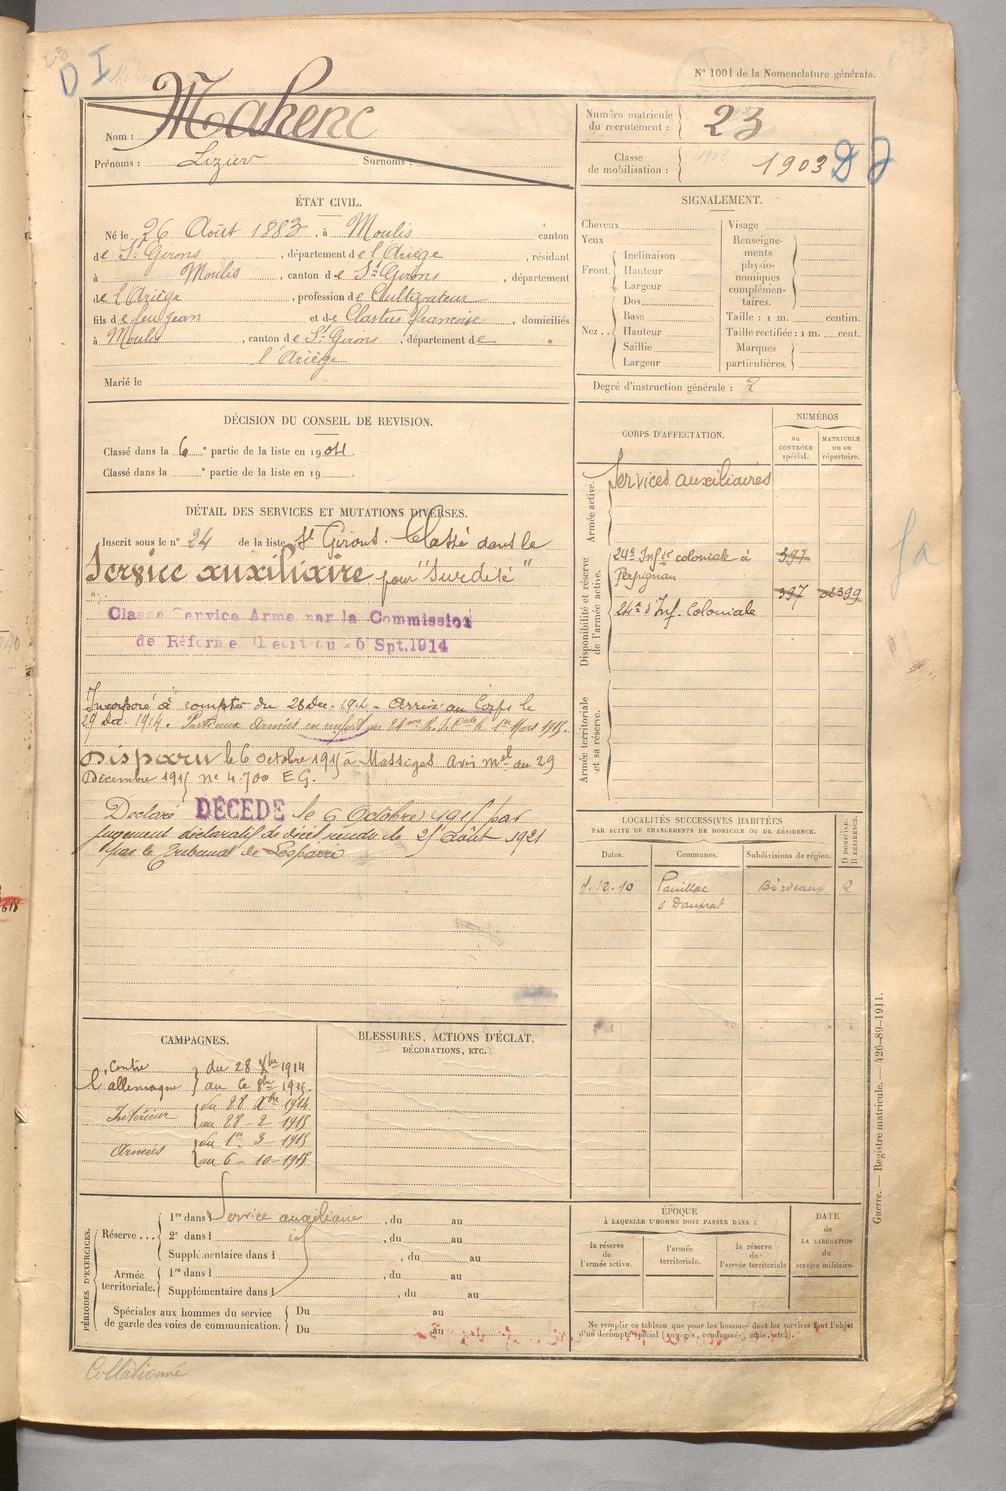 D I
N° 1001 de la Nomenclature générale.
Nom : Mahenc
Prénoms : Lizier Surnoms :
Numéro matricule du recrutement : 23
Classe de mobilisation : 1903 1903
ÉTAT CIVIL.
Né le 26 Août 1883, à Moulis canton
de St Girons, département de l'Ariège, résidant
à Moulis, canton de St Girons, département
de l'Ariège, profession de Cultivateur
fils de feu Jean et de Clastres françoise, domiciliés
à Moulis, canton de St Girons, département de
l'Ariège
Marié le
SIGNALEMENT.
Cheveux
Yeux
Front. Inclinaison
Hauteur
Largeur
Nez.. Dos
Base
Hauteur
Saillie
Largeur
Visage
Renseignements physionomiques complémentaires.
Taille : 1 m. centim.
Taille rectifiée : 1 m. cent.
Marques particulières.
Degré d'instruction générale : 2
DÉCISION DU CONSEIL DE REVISION.
Classé dans la 6e partie de la liste en 1904.
Classé dans la e partie de la liste en 19
DÉTAIL DES SERVICES ET MUTATIONS DIVERSES.
Inscrit sous le n° 24 de la liste St Girons. Classé dans le
Service auxiliaire pour "Surdité"
Classé Service Armé par la Commission
de Réforme Sept. 1914
Incorporé à compter du 28 Dec. 1914 - Arrivé au Corps le
29 dec. 1914. Parti aux Armées en renfort au 24me R. I. Cale le 1er Mars 1915.
Disparu le 6 Octobre 1915 à Massiges Avis mel du 29
Décembre 1915 n° 4.700 E G.
Déclaré DÉCÉDÉ le 6 Octobre 1915 par
jugement déclaratif de décès rendu le 25 Août 1921
par le Tribunal de Lesparre
CORPS D'AFFECTATION.
NUMÉROS
au CONTRÔLE spécial.
MATRICULE ou au répertoire.
Armée active.
Services auxiliaires
Disponibilité et réserve de l'armée active.
24e Infie coloniale à 397
Perpignan
24e d'Inf. Coloniale 397
Armée territoriale et sa réserve.
LOCALITÉS SUCCESSIVES HABITÉES
PAR SUITE DE CHANGEMENTS DE DOMICILE OU DE RÉSIDENCE.
D DOMICILE. R RÉSIDENCE.
Dates. Communes. Subdivisions de région.
12.10 Pauillac Bordeaux R
CAMPAGNES.
Contre du 28 Xbre 1914
l'allemagne au 6 8bre 1915.
Intérieur du 28 Xbre 1914
au 28 - 2 - 1915
Armées du 1er 3 - 1915
au 6 - 10 - 1915
BLESSURES, ACTIONS D'ÉCLAT,
DÉCORATIONS, ETC.
PÉRIODES D'EXERCICES.
Réserve... 1re dans l Service auxiliaire, du au
2e dans l, du au
Supplémentaire dans l, du au
Armée territoriale. 1re dans l, du au
Supplémentaire dans l, du au
Spéciales aux hommes du service de garde des voies de communication. Du au
Du au
ÉPOQUE
À LAQUELLE L'HOMME DOIT PASSER DANS :
la réserve de l'armée active.
l'armée territoriale.
la réserve de l'armée territoriale
DATE de LA LIBÉRATION du service militaire.
Ne remplir ce tableau que pour les hommes dont les services font l'objet
d'un décompte spécial (engagés, condamnés, omis, etc.).
Guerre. — Registre matricule. — 426-89-1911.
Collationné